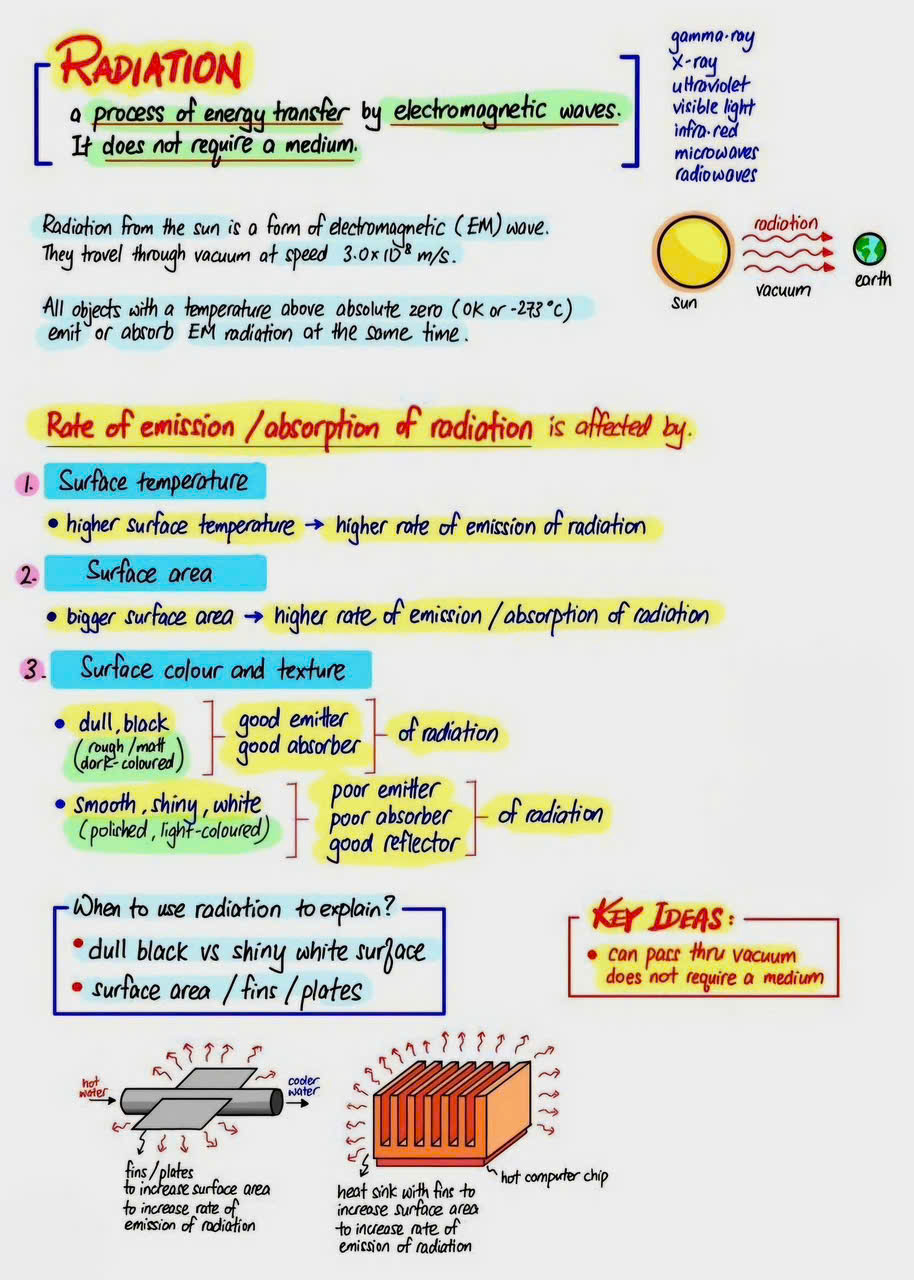 RADIATION
a process of energy transfer by electromagnetic waves.
It does not require a medium.
gamma-ray
x-ray
ultraviolet
visible light
infra-red
microwaves
radiowaves
Radiation from the sun is a form of electromagnetic (EM) wave.
They travel through vacuum at speed 3.0x10⁸ m/s.
radiation
vacuum
sun
earth
All objects with a temperature above absolute zero (0K or -273°C)
emit or absorb EM radiation at the same time.
Rate of emission/absorption of radiation is affected by.
1. Surface temperature
• higher surface temperature → higher rate of emission of radiation
2. Surface area
• bigger surface area → higher rate of emission/absorption of radiation
3. Surface colour and texture
• dull, black
(rough/matt
dark-coloured)
good emitter
good absorber
of radiation
• smooth, shiny, white
(polished, light-coloured)
poor emitter
poor absorber
good reflector
of radiation
When to use radiation to explain?
• dull black vs shiny white surface
• surface area / fins / plates
KEY IDEAS:
• can pass thru vacuum
does not require a medium
hot
water
cooler
water
fins/plates
to increase surface area
to increase rate of
emission of radiation
hot computer chip
heat sink with fins to
increase surface area
to increase rate of
emission of radiation